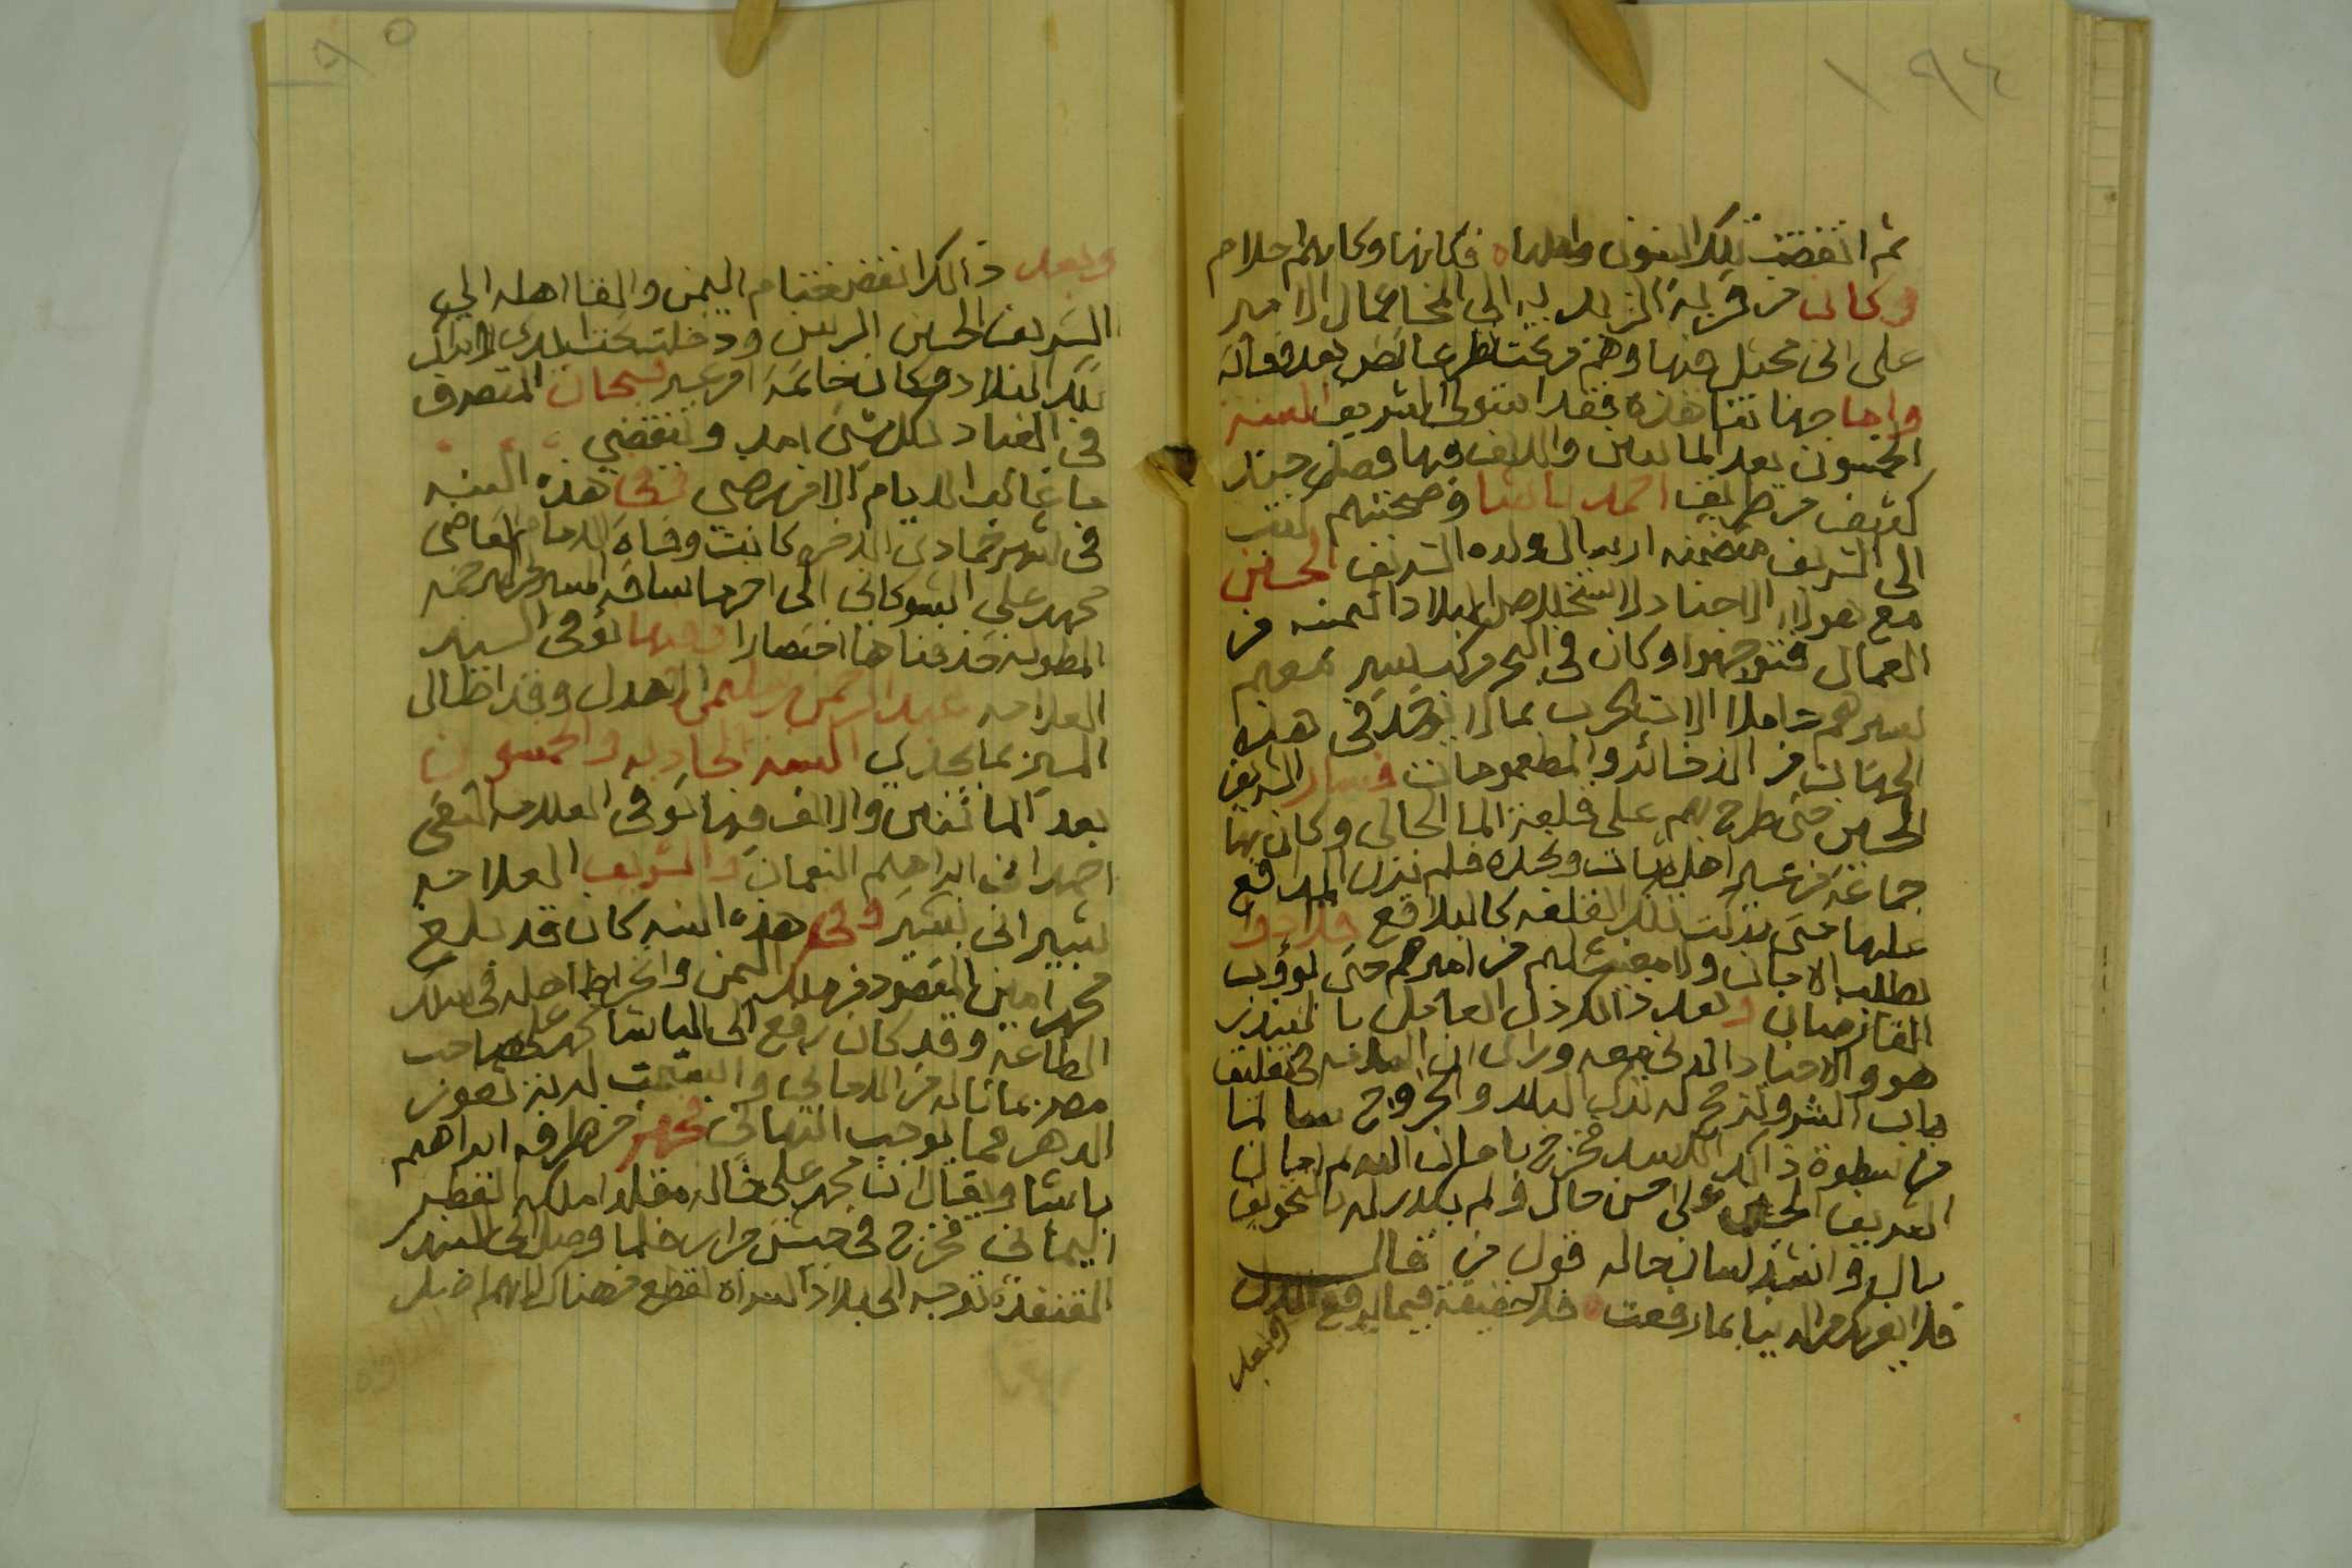 ١٩٤
ثم انقضت تلك السنون واهلها ه فكانها وكانهم احلام
وكان من قرية الزيدية الى المخا عمال الامير
على ابن مجثل فيها وهم من تحت نظر عائض بعد وفاته
واما جهاتنا هذه فقد استولى الشريف السنة
الخمسون بعد المائتين والالف فيها وصل جند
كثيف من طريف احمد باشا وصحبتهم كتب
الى الشريف متضمنه ارسال ولده الشريف الحسين
مع هولاء الاجناد لاستخلاص البلاد اليمنيه من
العمال فتوجهوا وكان في البحر مركب يسير معهم
بسيرهم حاملا الات الحرب بما لا يوجد في هذه
الجهات من الذخائر والمطعومات فسار الشريف
الحسين حتى طرح بهم على قلعة الما الحالى وكان بها
جماعة من عسير اهل ثبات ونجده فلم تزل المدافع
عليها حتى تركت تلك القلعه كالبلاقع فلاذوا
بطلب الامان ولا مغيث لهم من اميرهم حتى يوؤب
القارضان وبعد ذالك دخل العامل بالبندر
هو والاجناد الذي معه وراى ان السلامه في تغليق
باب الشر وترجح له ترك البلاد والخروج سالما
من سطوة ذالك الاسد فخرج بامان اليهم امان
الشريف الحسين على احسن حال ولم يكدر له بالتخويف
بال وانشد لسان حاله قول من قال
فلا تغرنك الدنيا بما رفعت ه فلا حقيقة فيما يرفع الال
وبعد
١٩٥
وبعد ذالك انقضى ختام اليمن والقا اهله الى
الشريف الحسين الرسن ودخلت تحت ايدي الاتراك
تلك البلاد وكان خاتمة امر عسير فسبحان المتصرف
في العباد لكل شي امد وينقضي
ما غالب الايام الا من رضى ففي هذه السنه
في شهر جمادى الاخره كانت وفاة الامام القاضى
محمد على الشوكانى الى اخر ما ساقه السيد من ترجمته
المطوله حذفناها اختصارا وفيها توفى السيد
العلامه عبد الرحمن بن سليمان الاهدل وقد اطال
المترجم بما يجدي السنه الحاديه والخمسون
بعد المائتين والالف فيها توفى العلامه التقى
احمد ابن ابراهيم النعمان والشريف العلامه
بشير ابن شبير وفي هذه السنه كان قد بلغ
محمد امين المقصود من ملك اليمن وانخراط اهله في سلك
الطاعه وقد كان رفع الى الباشا محمد على صاحب
مصر بما ناله من الامانى وابتسمت له به ثغور
الدهر مما يوجب التهانى فجهز من طرفه ابراهيم
باشا ويقال ان محمد على خاله مقلدا ملكه القطر
اليمانى فخرج في جيش جرار فلما وصل الى البندر
القنفذه توجه الى بلاد السراه لقطع من هناك لانهم اضل